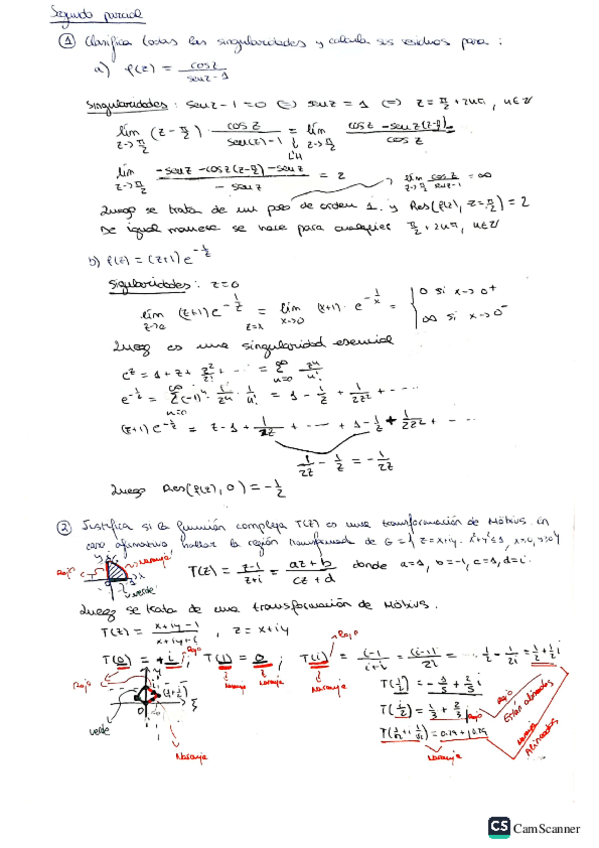 Segundo parcial
① Clasifica todas las singularidades y calcula sus residuos para:
a) f(z) = cos z / (sen z - 1)
Singularidades: sen z - 1 = 0 ⇔ sen z = 1 ⇔ z = π/2 + 2nπ, n∈ℤ
lim z→π/2 (z - π/2) · cos z / (sen(z) - 1) = L'H lim z→π/2 (cos z - sen z (z - π/2)) / cos z
lim z→π/2 (-sen z - cos z (z - π/2) - sen z) / (-sen z) = 2
lim z→π/2 cos z / (sen z - 1) = ∞
Luego se trata de un polo de orden 1. y Res(f(z), z = π/2) = 2
De igual manera se hace para cualquier π/2 + 2nπ, n∈ℤ
b) f(z) = (z+1) e^(-1/z)
Singularidades: z = 0
lim z→0 (z+1) e^(-1/z) = z=x lim x→0 (x+1) · e^(-1/x) = { 0 si x→0⁺
∞ si x→0⁻
Luego es una singularidad esencial
e^z = 1 + z + z²/2! + ... = Σ n=0 ∞ zⁿ/n!
e^(-1/z) = Σ n=0 ∞ (-1)ⁿ · 1/zⁿ · 1/n! = 1 - 1/z + 1/2z² + ...
(z+1) e^(-1/z) = z - 1 + 1/2z + ... + 1 - 1/z + 1/2z² + ...
1/2z - 1/z = -1/2z
Luego Res(f(z), 0) = -1/2
② Justifica si la función compleja T(z) es una transformación de Möbius. En
caso afirmativo hallar la región transformada de G = { z = x+iy · x²+y² ≤ 1, x≥0, y≥0 }
Rojo
Naranja
verde
T(z) = (z-1)/(z+i) = (az+b)/(cz+d) donde a=1, b=-1, c=1, d=i.
Luego se trata de una transformación de Möbius.
T(z) = (x+iy-1)/(x+iy+i), z = x+iy
Rojo
T(0) = +i; T(1) = 0; T(i) = (i-1)/(i+i) = (i-1)/2i = ... 1/2 - 1/2i = 1/2 + 1/2 i
Rojo
Naranja
Naranja
Naranja
verde
Naranja
T(1/2) = -1/5 + 2/5 i
T(i/2) = 1/3 + 2/3 i
Rojo
Están alineados
T(1/√2 + i 1/√2) = 0.29 + i0.29
Naranja
Alineados
CS CamScanner